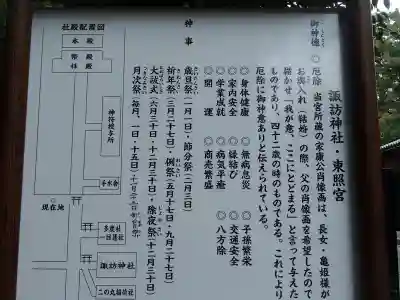 諏訪神社・東照宮
御神徳
◎厄除 当宮所蔵の家康公肖像画は、長女・亀姫様が
お輿入れ（結婚）の際、父の肖像画を希望したので
描かせ「我が意、ここにとどまる」と言って与えた
ものであり、四十二歳の時のものである。これにより
厄除に御神意ありと伝えられている。
◎身体健康 ◎無病息災 ◎子孫繁栄
◎家内安全 ◎縁結び ◎交通安全
◎学業成就 ◎病気平癒 ◎八方除
◎開運 ◎商売繁盛
神事
歳旦祭（一月一日）・節分祭（二月三日）
祈年祭（三月二十七日）・例祭（五月十七日・九月二十七日）
大祓式（六月三十日・十二月三十日）・除夜祭（十二月三十日）
月次祭（毎月、一日・十五日）
社殿配置図
本殿
幣殿
拝殿
神符授与所
手水舎
現在地
多度社
諏訪神社
二の丸稲荷社